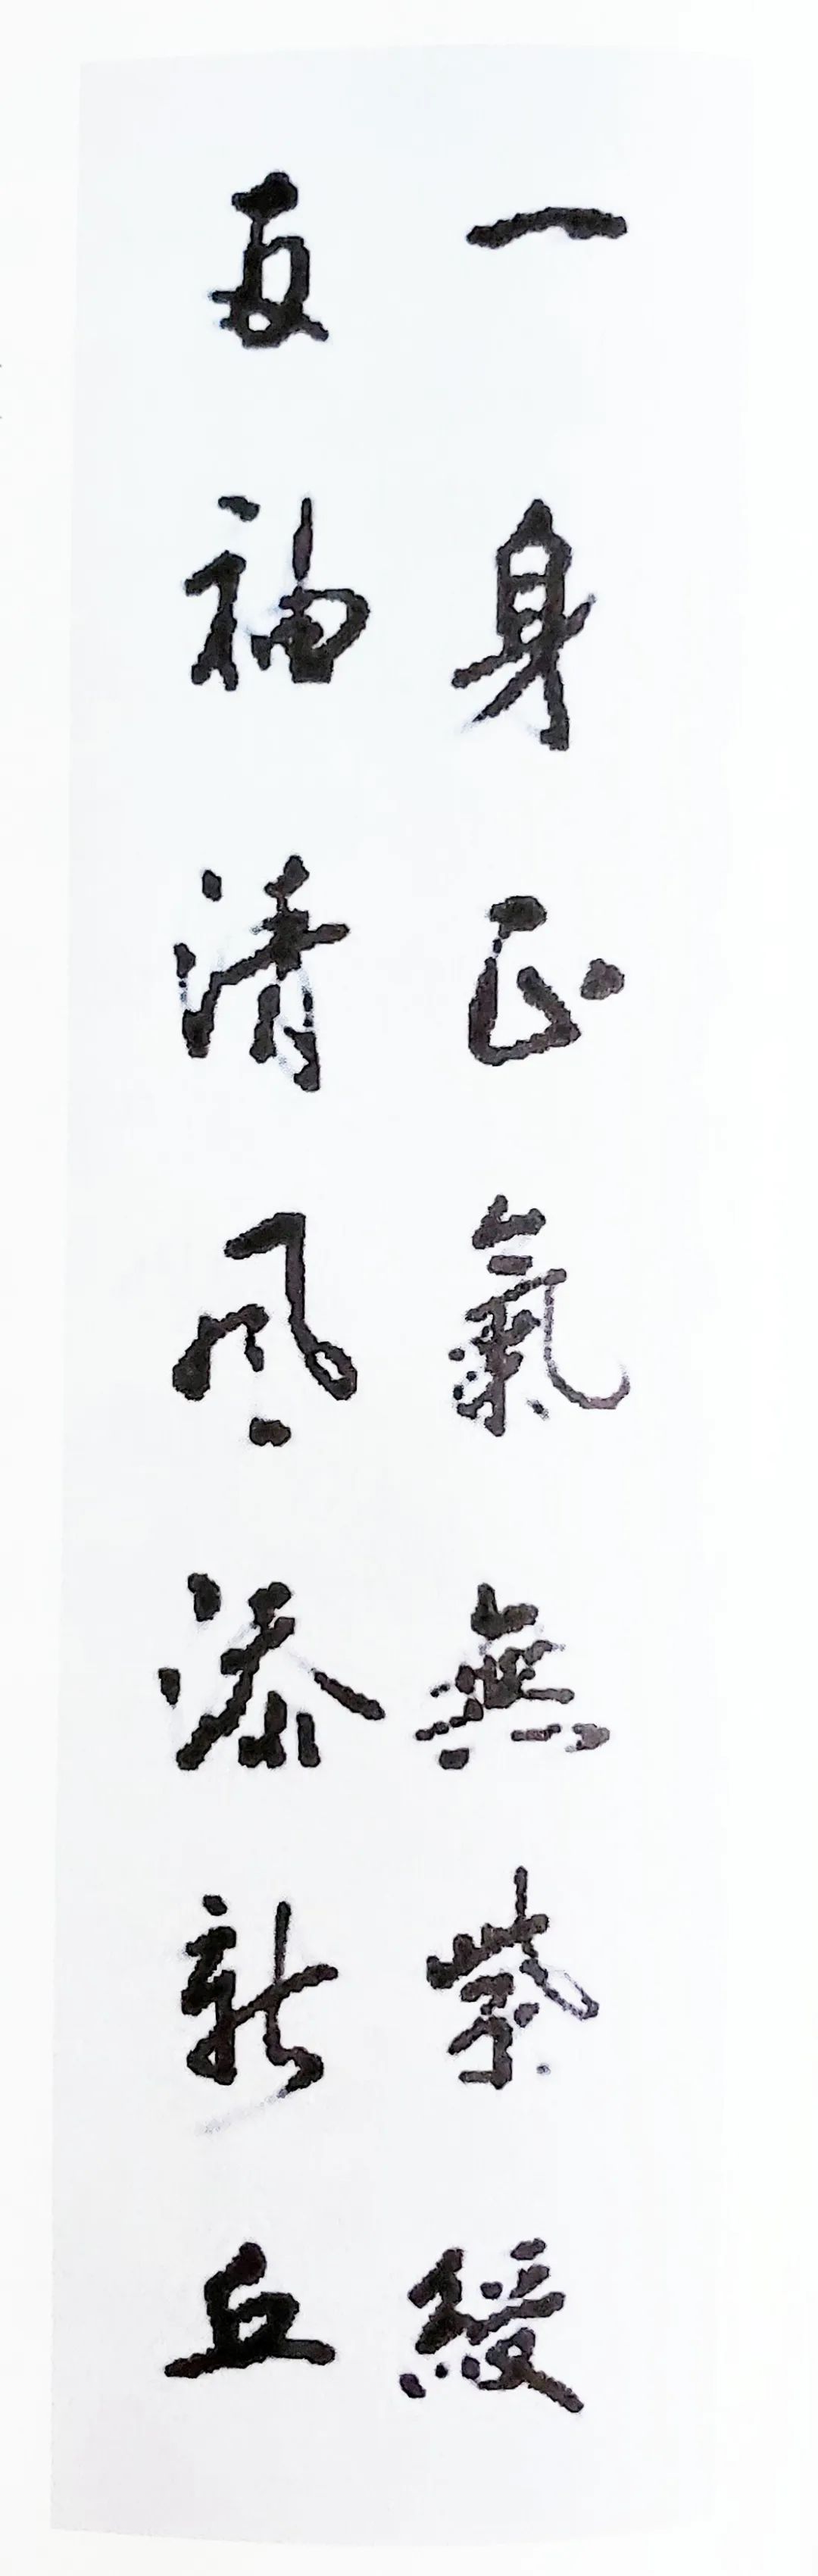 一身正氣無紫綬
兩袖清風添新丘